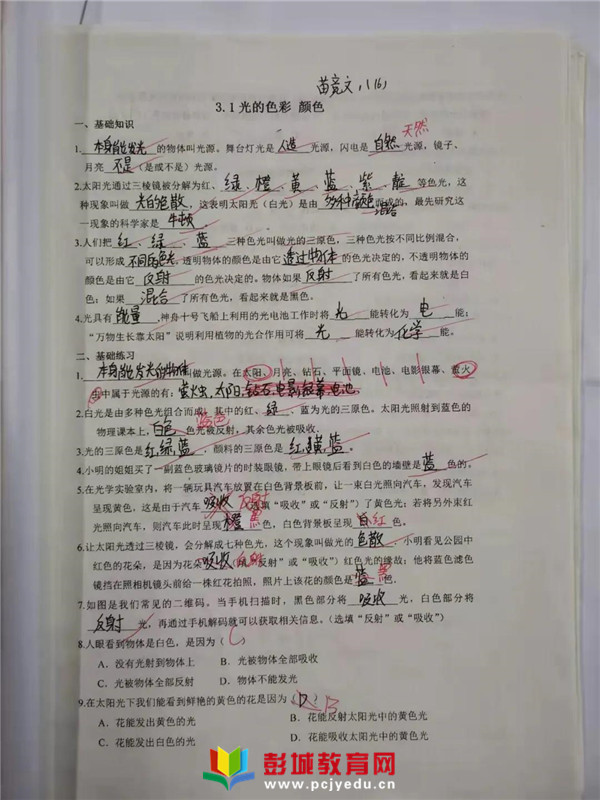 苗竟文 八(6)
3.1光的色彩 颜色
一、基础知识
1. 本身能发光 的物体叫光源。舞台灯光是 人造 光源,闪电是 自然 光源,镜子、
天然
月亮 不是 (是或不是)光源。
2.太阳光通过三棱镜被分解为红、绿、橙、黄、蓝、紫、靛 等色光,这
种现象叫做 光的色散 ,这表明太阳光(白光)是由 多种颜色 组成的,最先研究这
混合
一现象的科学家是 牛顿
3.人们把 红、绿、蓝 三种色光叫做光的三原色,三种色光按不同比例混合,
可以形成 不同颜色光 透明物体的颜色是由它 透过物体 的色光决定的,不透明物体的
颜色是由它 反射 的色光决定的。物体如果 反射 了所有色光,看起来就是白
色;如果 混合 了所有色光,看起来就是黑色。
4.光具有 能量 ,神舟十号飞船上利用的光电池工作时将 光 能转化为 电 能;
“万物生长靠太阳”说明利用植物的光合作用可将 光 能转化为 化学 能。
二、基础练习
1. 本身能发光的物体 叫做光源。在太阳、月亮、钻石、平面镜、电池、电影银幕、萤火
虫中属于光源的有: 萤火虫、太阳、钻石、电影银幕、电池
2.白光是由多种色光组合而成,其中的红、绿、蓝为光的三原色。太阳光照射到蓝色的
物理课本上, 白色 色光被反射,其余色光被吸收。
3.光的三原色是 红,绿,蓝 ,颜料的三原色是 红,黄,蓝 。
4.小明的姐姐买了一副蓝色玻璃镜片的时装眼镜,带上眼镜后看到白色的墙壁是 蓝 色的。
5.在光学实验室内,将一辆玩具汽车放置在白色背景板前,让一束白光照向汽车,发现汽车
呈现黄色,这是由于汽车 吸收 反射 (选填“吸收”或“反射”)了黄色光;若将另外束红
光照向汽车,则汽车此时呈现 橙 黑 色,白色背景板呈现 白 红 色。
6.让太阳光透过三棱镜,会分解成七种色光,这个现象叫做光的 色散 ,小明看见公园中
红色的花朵,是因为花朵 吸收 (填“反射”或“吸收”)红色光的缘故;他将蓝色滤色
镜挡在照相机镜头前给一株红花拍照,照片上该花的颜色是 蓝 黑 色。
7.如图是我们常见的二维码。当手机扫描时,黑色部分将 吸收 光,白色部分将
反射 光,再通过手机解码就可以获取相关信息。(选填“反射”或“吸收”)
8.人眼看到物体是白色,是因为( C )
A.没有光射到物体上 B.光被物体全部吸收
C.光被物体全部反射 D.物体不能发光
9.在太阳光下我们能看到鲜艳的黄色的花是因为( D ) B
A.花能发出黄色的光 B.花能反射太阳光中的黄色光
C.花能发出白色的光 D.花能吸收太阳光中的黄色光
彭城教育网
www.pcjyedu.cn